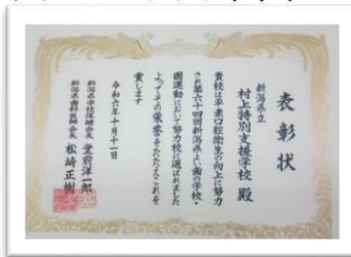 表彰状
新潟県立
村上特別支援学校 殿
貴校は平素口腔衛生の向上に努力
され第六十四回新潟県よい歯の学校・
園運動において努力校に選ばれました
よってその栄誉をたたえこれを
賞します
令和六年十月十一日
新潟県学校保健会長 堂前洋一郎
新潟県歯科医師会長 松﨑正樹